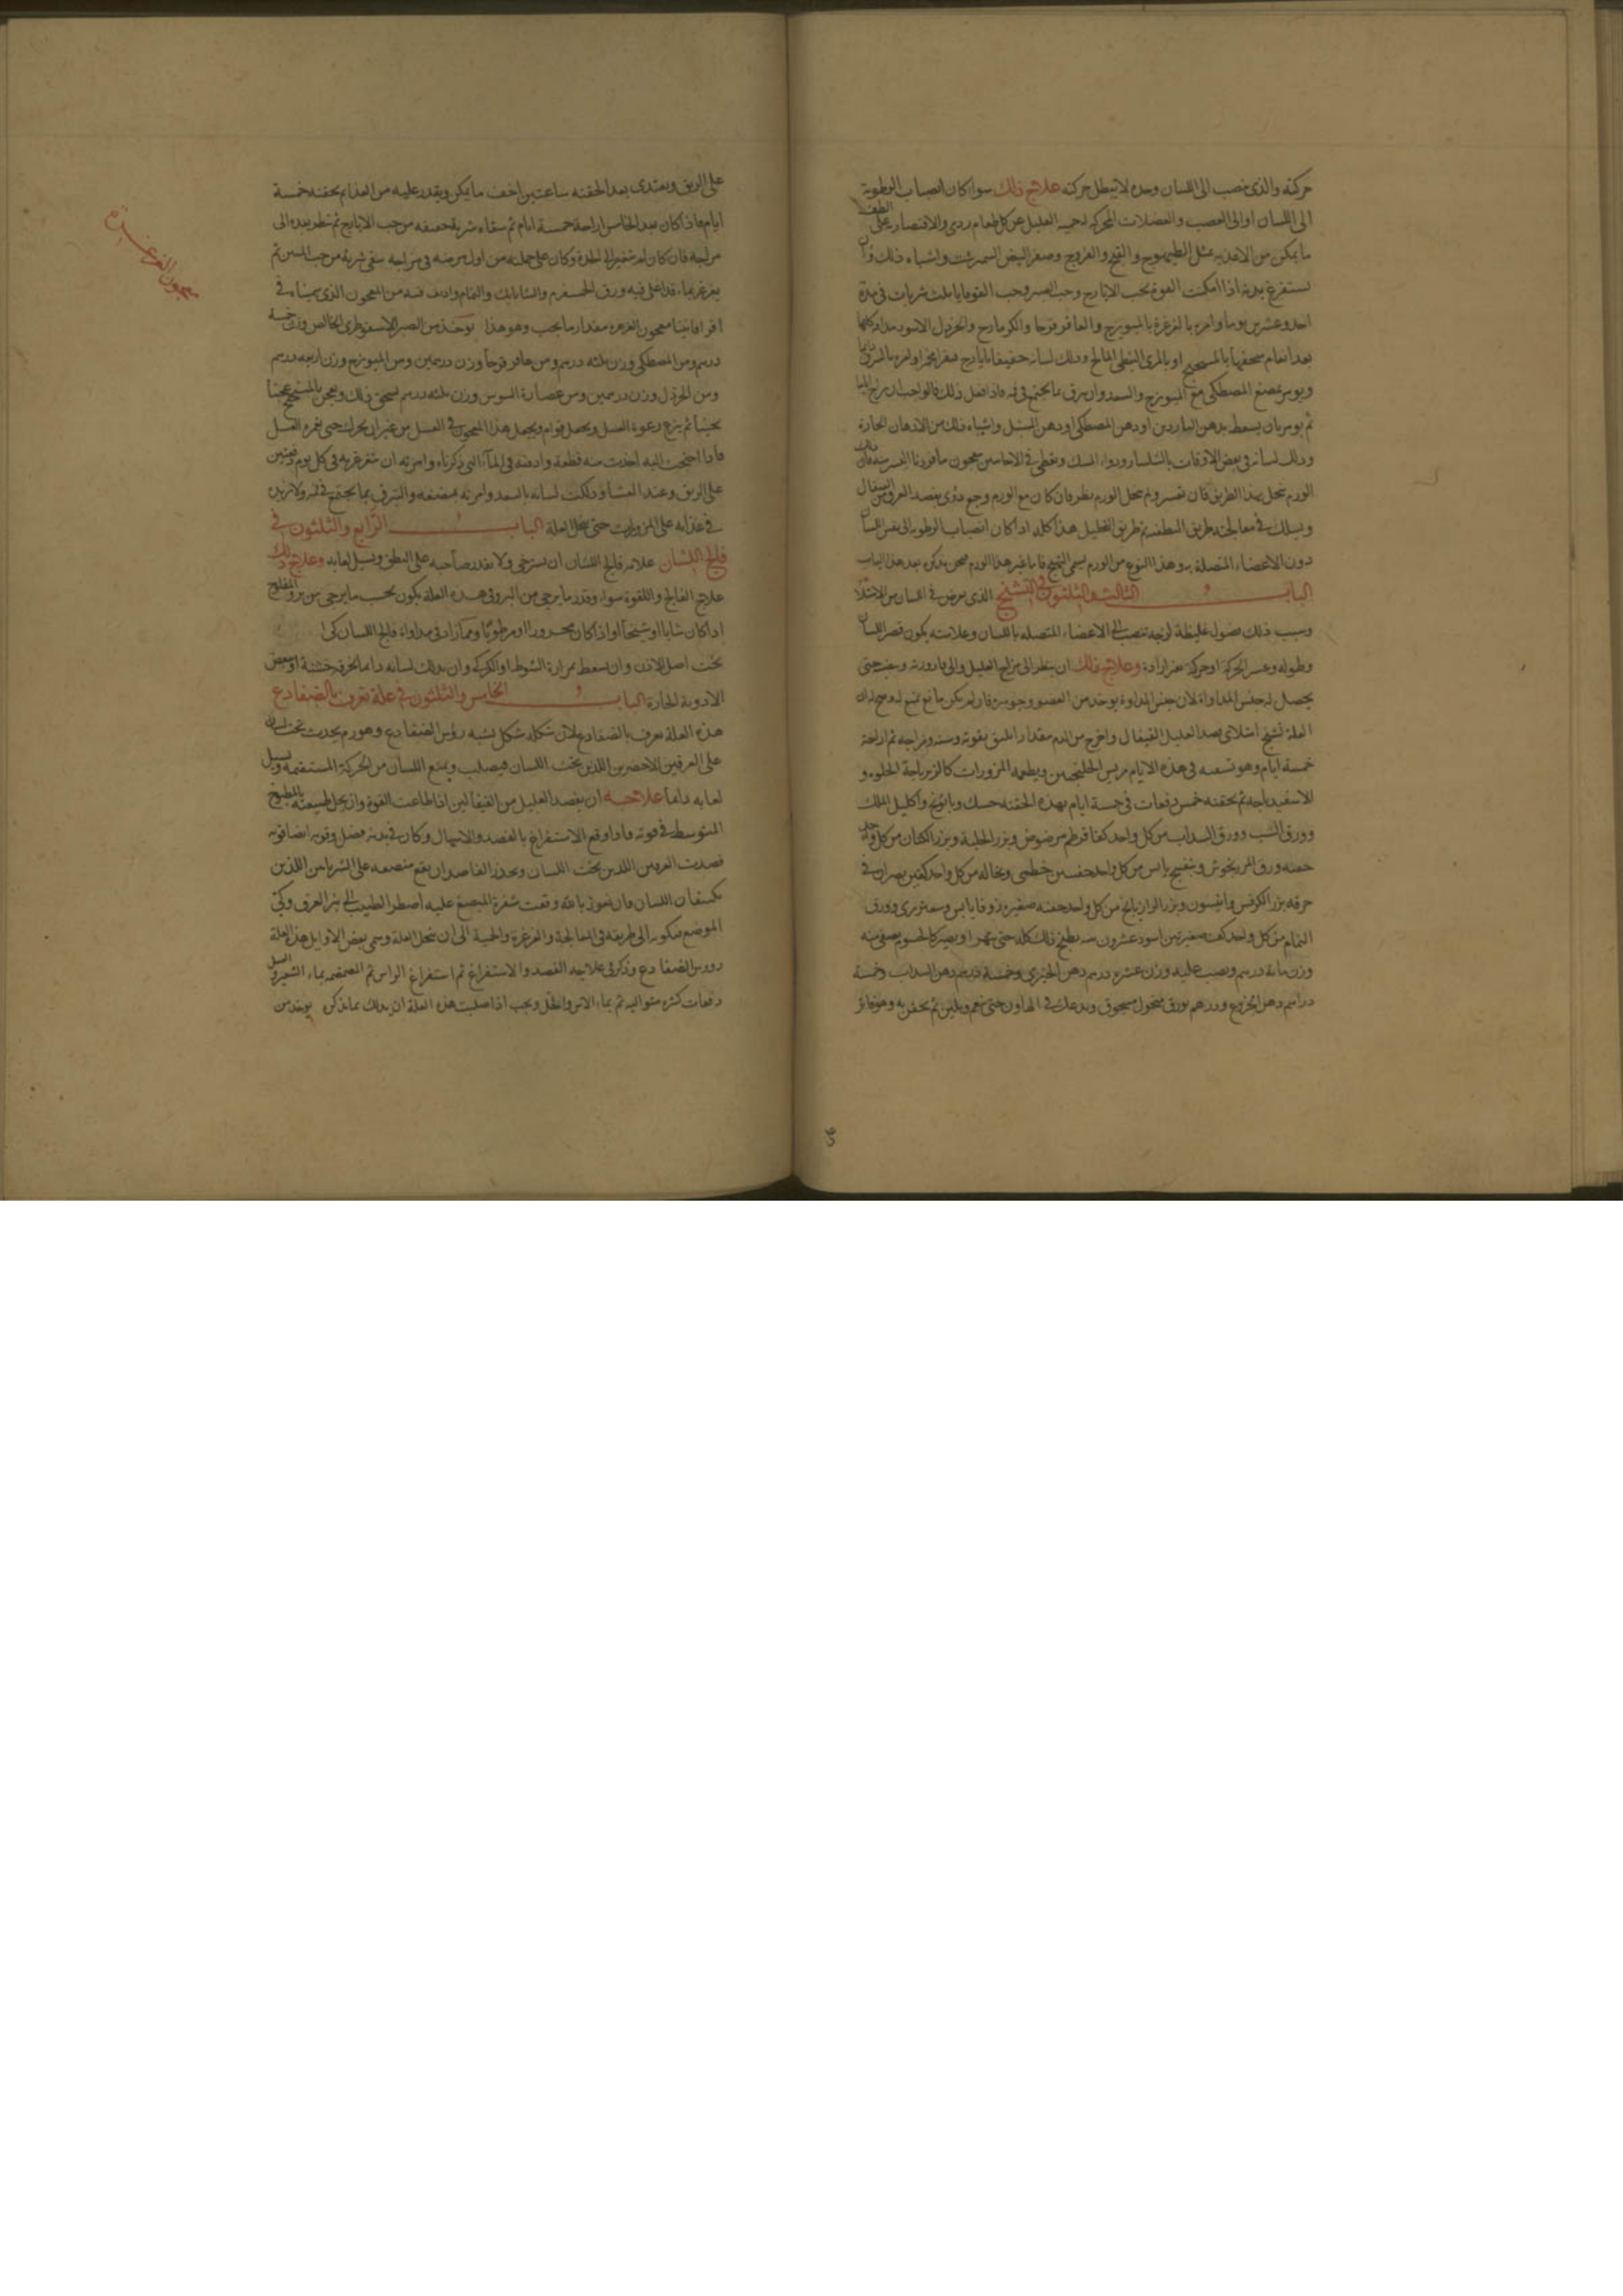 حركته والذى ينصب الى اللسان وحده لا يبطل حركته علاج ذلك سوا كان انصباب الرطوبة
الى اللسان او الى العصب والعضلات المحركة له حمية العليل عن كل طعام ردى والاقتصار على الطف
ما يمكن من الاغذيه مثل الطيهوج والقبج والفروج وصفر البيض النيمرشت واشباه ذلك وان
يستفرغ بدنه اذا امكنت القوة بحب الايارج وحب الصبر وحب القوقايا ثلث شربات فى مدة
احد وعشرين يوما وامره بالغرغرة بالميويزج والعاقرقرحا والكرمازج والخردل الاسود هذه كلها
بعد انعام سحقها بالسكنجبين او بالمرى النبطى المالح ودلك لسانه بايارج فيقرا
ويومر بمضغ المصطكى مع الميويزج والسعد وان يبزق ما يجتمع فى فمه فاذا فعل ذلك فالواجب ان يراح اياما
ثم يومر بان يسعط بدهن الناردين او دهن المصطكى او دهن السنبل واشباه ذلك من الادهان الحارة
ودلك لسانه فى بعض الاوقات بالشلشا ودواء المسك
الورم ينحل بهذا الطريق فان تعسر ولم ينحل الورم نظر فان كان مع الورم وجع دوى بفصد العروق
ويسلك فى معالجته طريق التطفئه ثم طريق التحليل هذا كله اذا كان انصباب الرطوبه الى نفس اللسان
دون الاعضاء المتصلة به وهذا النوع من الورم يسمى التهيج فاما غير هذا الورم فنحن نذكره بعد هذا الباب
الباب الثالث والثلثون فى التشنج الذى يعرض فى اللسان من الامتلا
وسبب ذلك فضول غليظة لزجه تنصب الى الاعضاء المتصله باللسان وعلامته يكون قصر اللسان
وطوله وعسر الحركة او حركة بغير ارادة وعلاج ذلك ان ينظر الى مزاج العليل والى قارورته وسنه حتى
يحصل له جنس المداواة لان جنس المداوة يوخذ من العضو وجوهره فان لم يكن مانع يمنع له وصح له ان
العلة تشنج امتلائى فصد العليل القيفال واخرج من الدم مقدار ما يليق بقوته وسنه ومزاجه ثم اراحته
خمسة ايام وهو يسقيه فى هذه الايام مريس الخلنجبين ويطعمه المزورات كالزيرباجة الحلوه و
الاسفيدباجه ثم يحقنه خمس دفعات فى خمسة ايام بهذه الحقنه حسك وبابونج واكليل الملك
وورق الشب وورق السداب من كل واحد كفا قرطم مرضوض وبزر الحلبة وبزر الكتان من كل واحد
حفنه ورق المرزنجوش وبنفسج يابس من كل واحد حفنتين خطمى ونخاله من كل واحد كفين يصران فى
خرقه بزر الكرفس وانيسون وبزر الرازيانج من كل واحد حفنه صغيره زوفا يابس وصعتر برى وورق
النمام من كل واحد كف صغير تين اسود عشرون يطبخ ذلك كله حتى يتهرا ويصير كالحسو يصفى منه
وزن مائة درهم ويصب عليه وزن عشره درهم دهن الخيرى وخمسة درهم دهن السداب وخمسة
دراهم دهن الخروع ودرهم بورق منخول مسحوق ويدعك فى الهاون حتى ينعم ويلين ثم يحقن به وهو فاتر
على الريق ويغتدى بعد الحقنه ساعتين اخف ما يمكن ويقدر عليه من الغذا ثم يحقنه خمسة
ايام فاذا كان بعد الخامس اراحه خمسة ايام ثم سقاه شربة خفيفه من حب الايارج ثم نظر بعده الى
مزاجه فان كان لم يتغير الى الحدة وكان على حاله من اول مرضه فى مزاجه سقى شربة من حب المسن ثم
يغرغر بماء قد اغلى فيه ورق والنمام واديف فيه من المعجون الذى سميناه فى
اقراباديننا معجون الغرغره مقدار ما يجب وهو هذا يوخذ من الصبر الاسقوطرى الخالص وزن خمسه
درهم ومن المصطكى وزن ثلثه درهم ومن عاقرقرحا وزن درهمين ومن الميويزج وزن اربعه درهم
ومن الخردل وزن درهمين ومن عصارة السوس وزن ثلثه درهم يسحق ذلك ويعجن بالميبختج عجنا
ثم ينزع رغوة العسل ويجعل له قوام ويجعل هذا المعجون فى العسل من غير ان يحرك حتى يغمره العسل
فاذا احتجت اليه اخذت منه قطعة واذفته فى الماء التى ذكرناه وامرته ان يتغرغر به فى كل يوم دفعتين
على الريق وعند العشا ودلكت لسانه بالسعد وامرته بمضغه والتبزق بما يجتمع فى فمه ولا تزيده
فى غذائه على المزورات حتى ينحل العلة الباب الرابع والثلثون فى
فالج اللسان علامه فالج اللسان ان يسترخى ولا يقدر صاحبه على النطق ويسيل لعابه وعلاج ذلك
علاج الفالج واللقوة سواء وقدر ما يرجى من البرو فى هذه العلة يكون بحسب ما يرجى من برو المفلوج
اذا كان شابا او شيخا او اذا كان محرورا او مرطوبا ومما زاد فى مداواة فالج اللسان كى
تحت اصل الاذن وان يسعط بمرارة الشبوط او الكركى وان يدلك لسانه دايما بخرقه خشنة او ببعض
الادوية الحارة الباب الخامس والثلثون فى علة تعرف بالضفادع
هذه العلة تعرف بالضفادع لان شكله شكل يشبه رؤس الضفادع وهو ورم يحدث تحت اللسان
على العرقين الاخضرين اللذين تحت اللسان فيصلب ويمنع اللسان من الحركة المستقيمه ويسيل
لعابه دايما علاجه ان يفصد العليل من القيفالين اذا طاعت القوة وان يحل طبيعته بالمطبوخ
المتوسط فى قوته فاذا وقع الاستفراغ بالفصد والاسهال وكان فى بدنه فضل وقوه ايضا قويه
فصدت العرقين اللذين تحت اللسان وتحذر الفاصد ان يقع مبضعه على الشريانين اللذين
يكتنفان اللسان فان نعوذ بالله وقعت شفرة المبضع عليه اضطر الطبيب الى بتر العرق وكى
الموضع فيكون الى طريقه فى المعالجة والغرغرة والحمية الى ان ينحل العلة وسمى بعض الاوايل هذه العلة
رووس الضفادع وذكر فى علاجه الفصد والاستفراغ ثم استفراغ الراس ثم المضمضه بماء الشعير و العسل
دفعات كثيره متواليه ثم بماء الاس والخل ويجب اذا صلبت هذه العلة ان يدلك بما نذكره يوخذ من
معجون الغرغرة